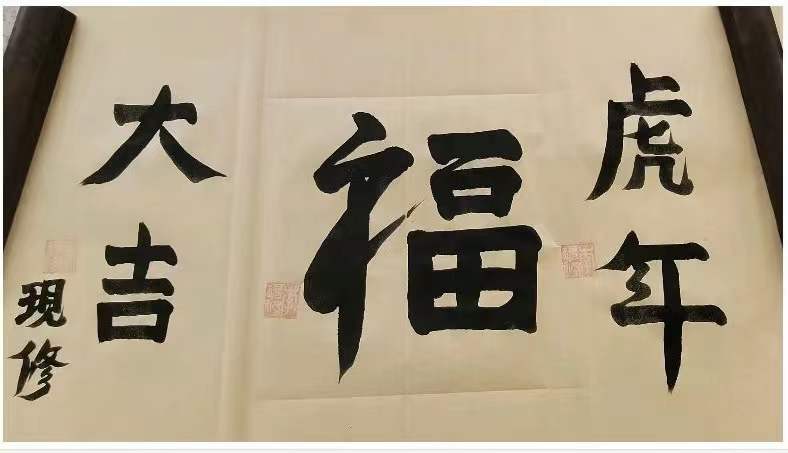 虎年
福
大吉
現修